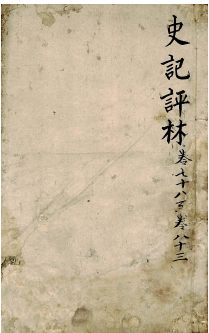 史記評林 卷七十八至卷八十三